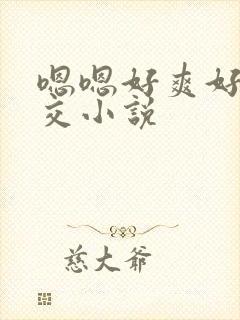 嗯嗯好爽好
交小説
慈大爷